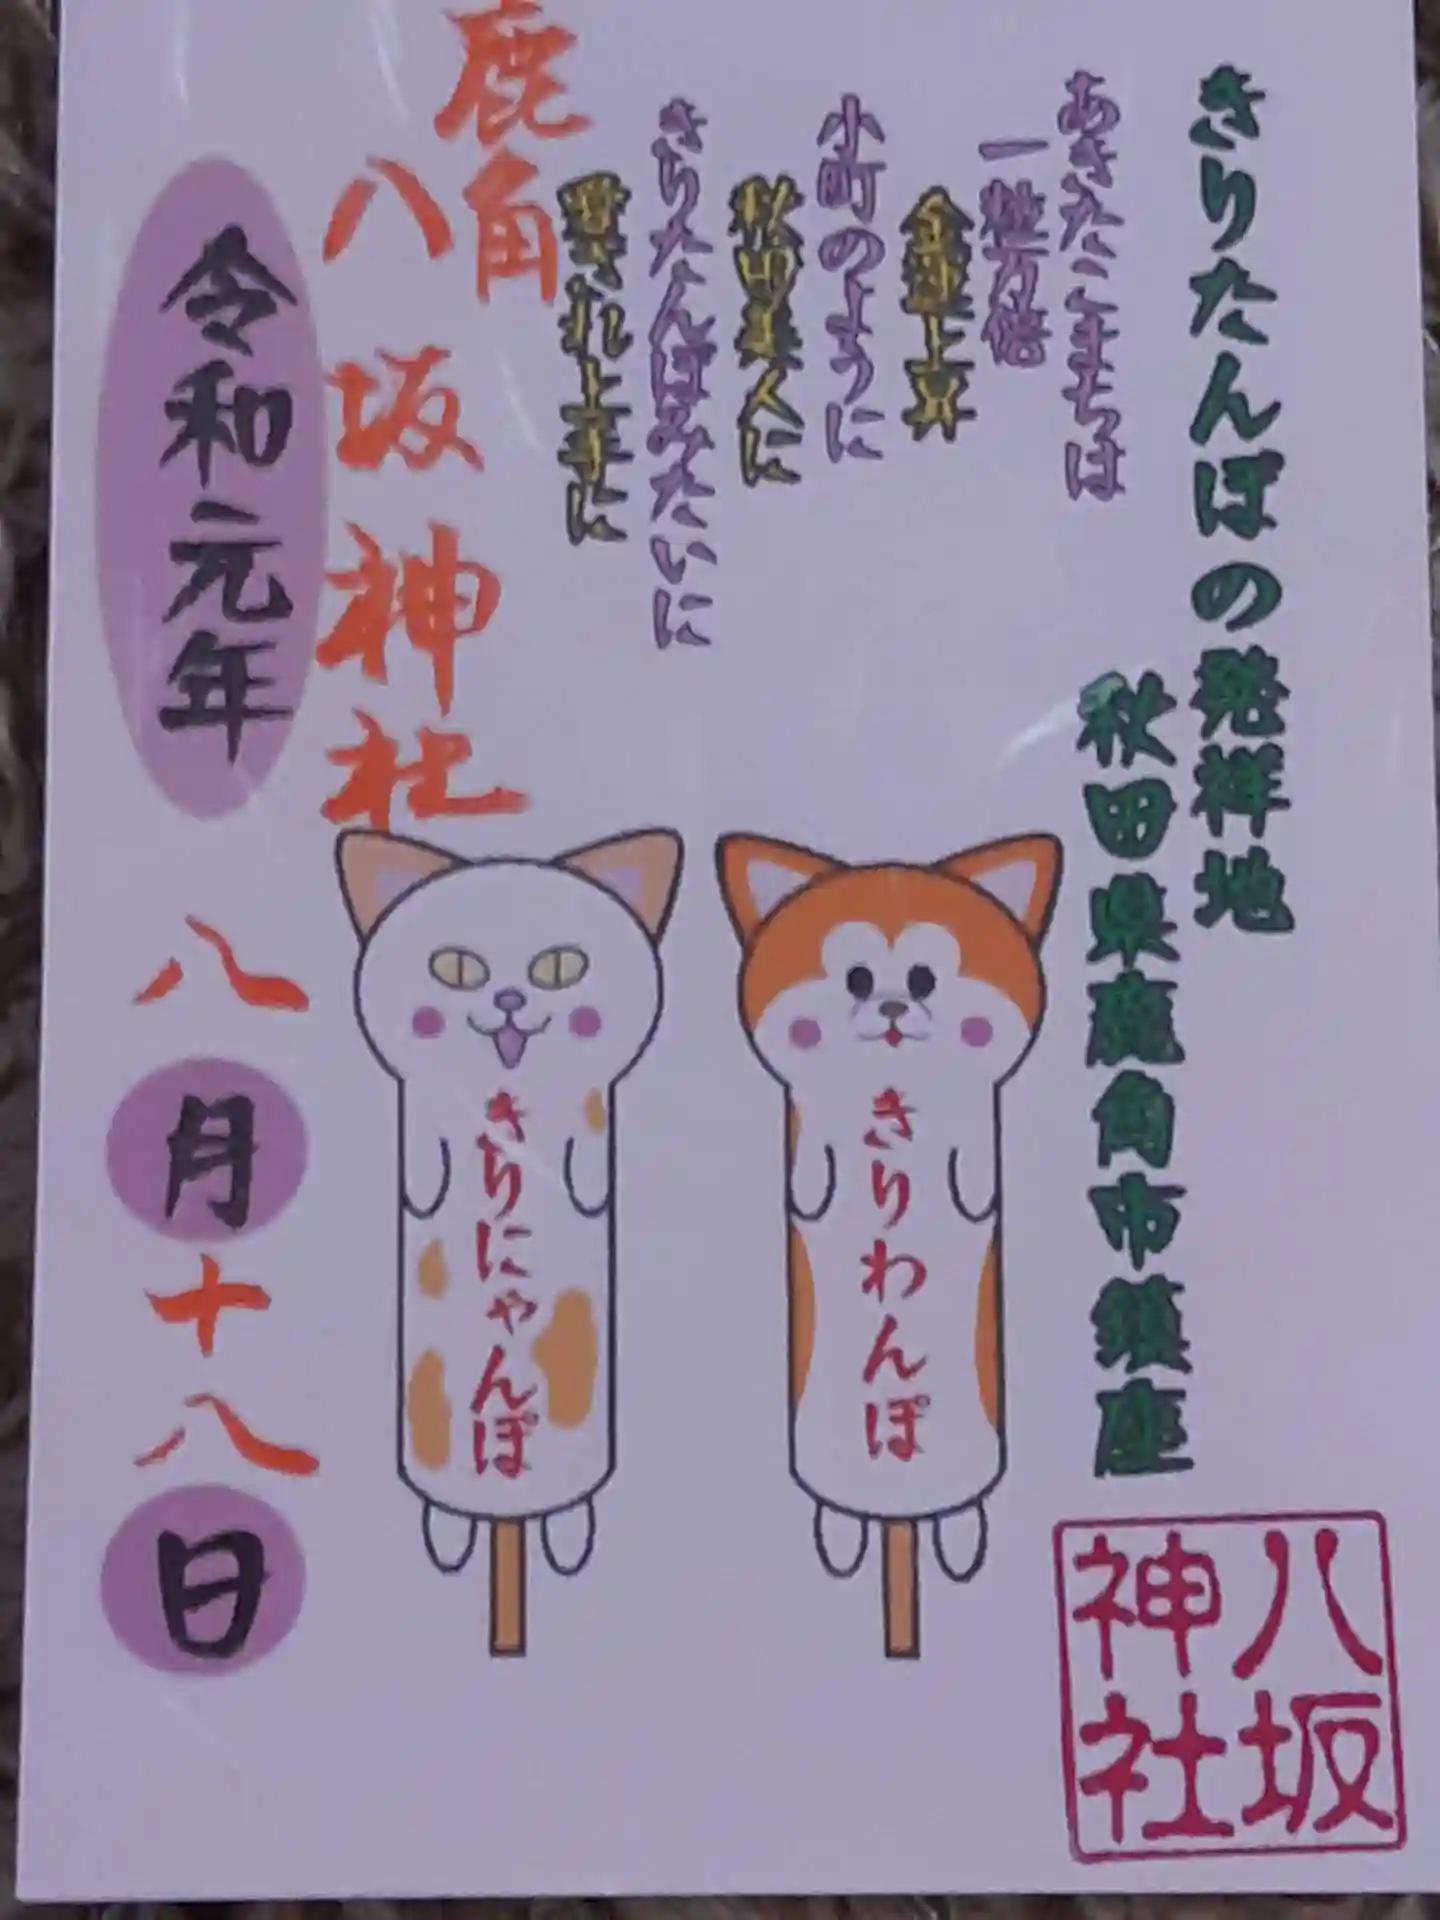 きりたんぽの発祥地
秋田県鹿角市鎮座
あきたこまちは
一粒万倍
金運上昇
小町のように
秋田美人に
きりたんぽみたいに
甘れ上手に
鹿角
八坂神社
令和元年
八月十八日
きりわんぽ
きりにゃんぽ
八坂
神社